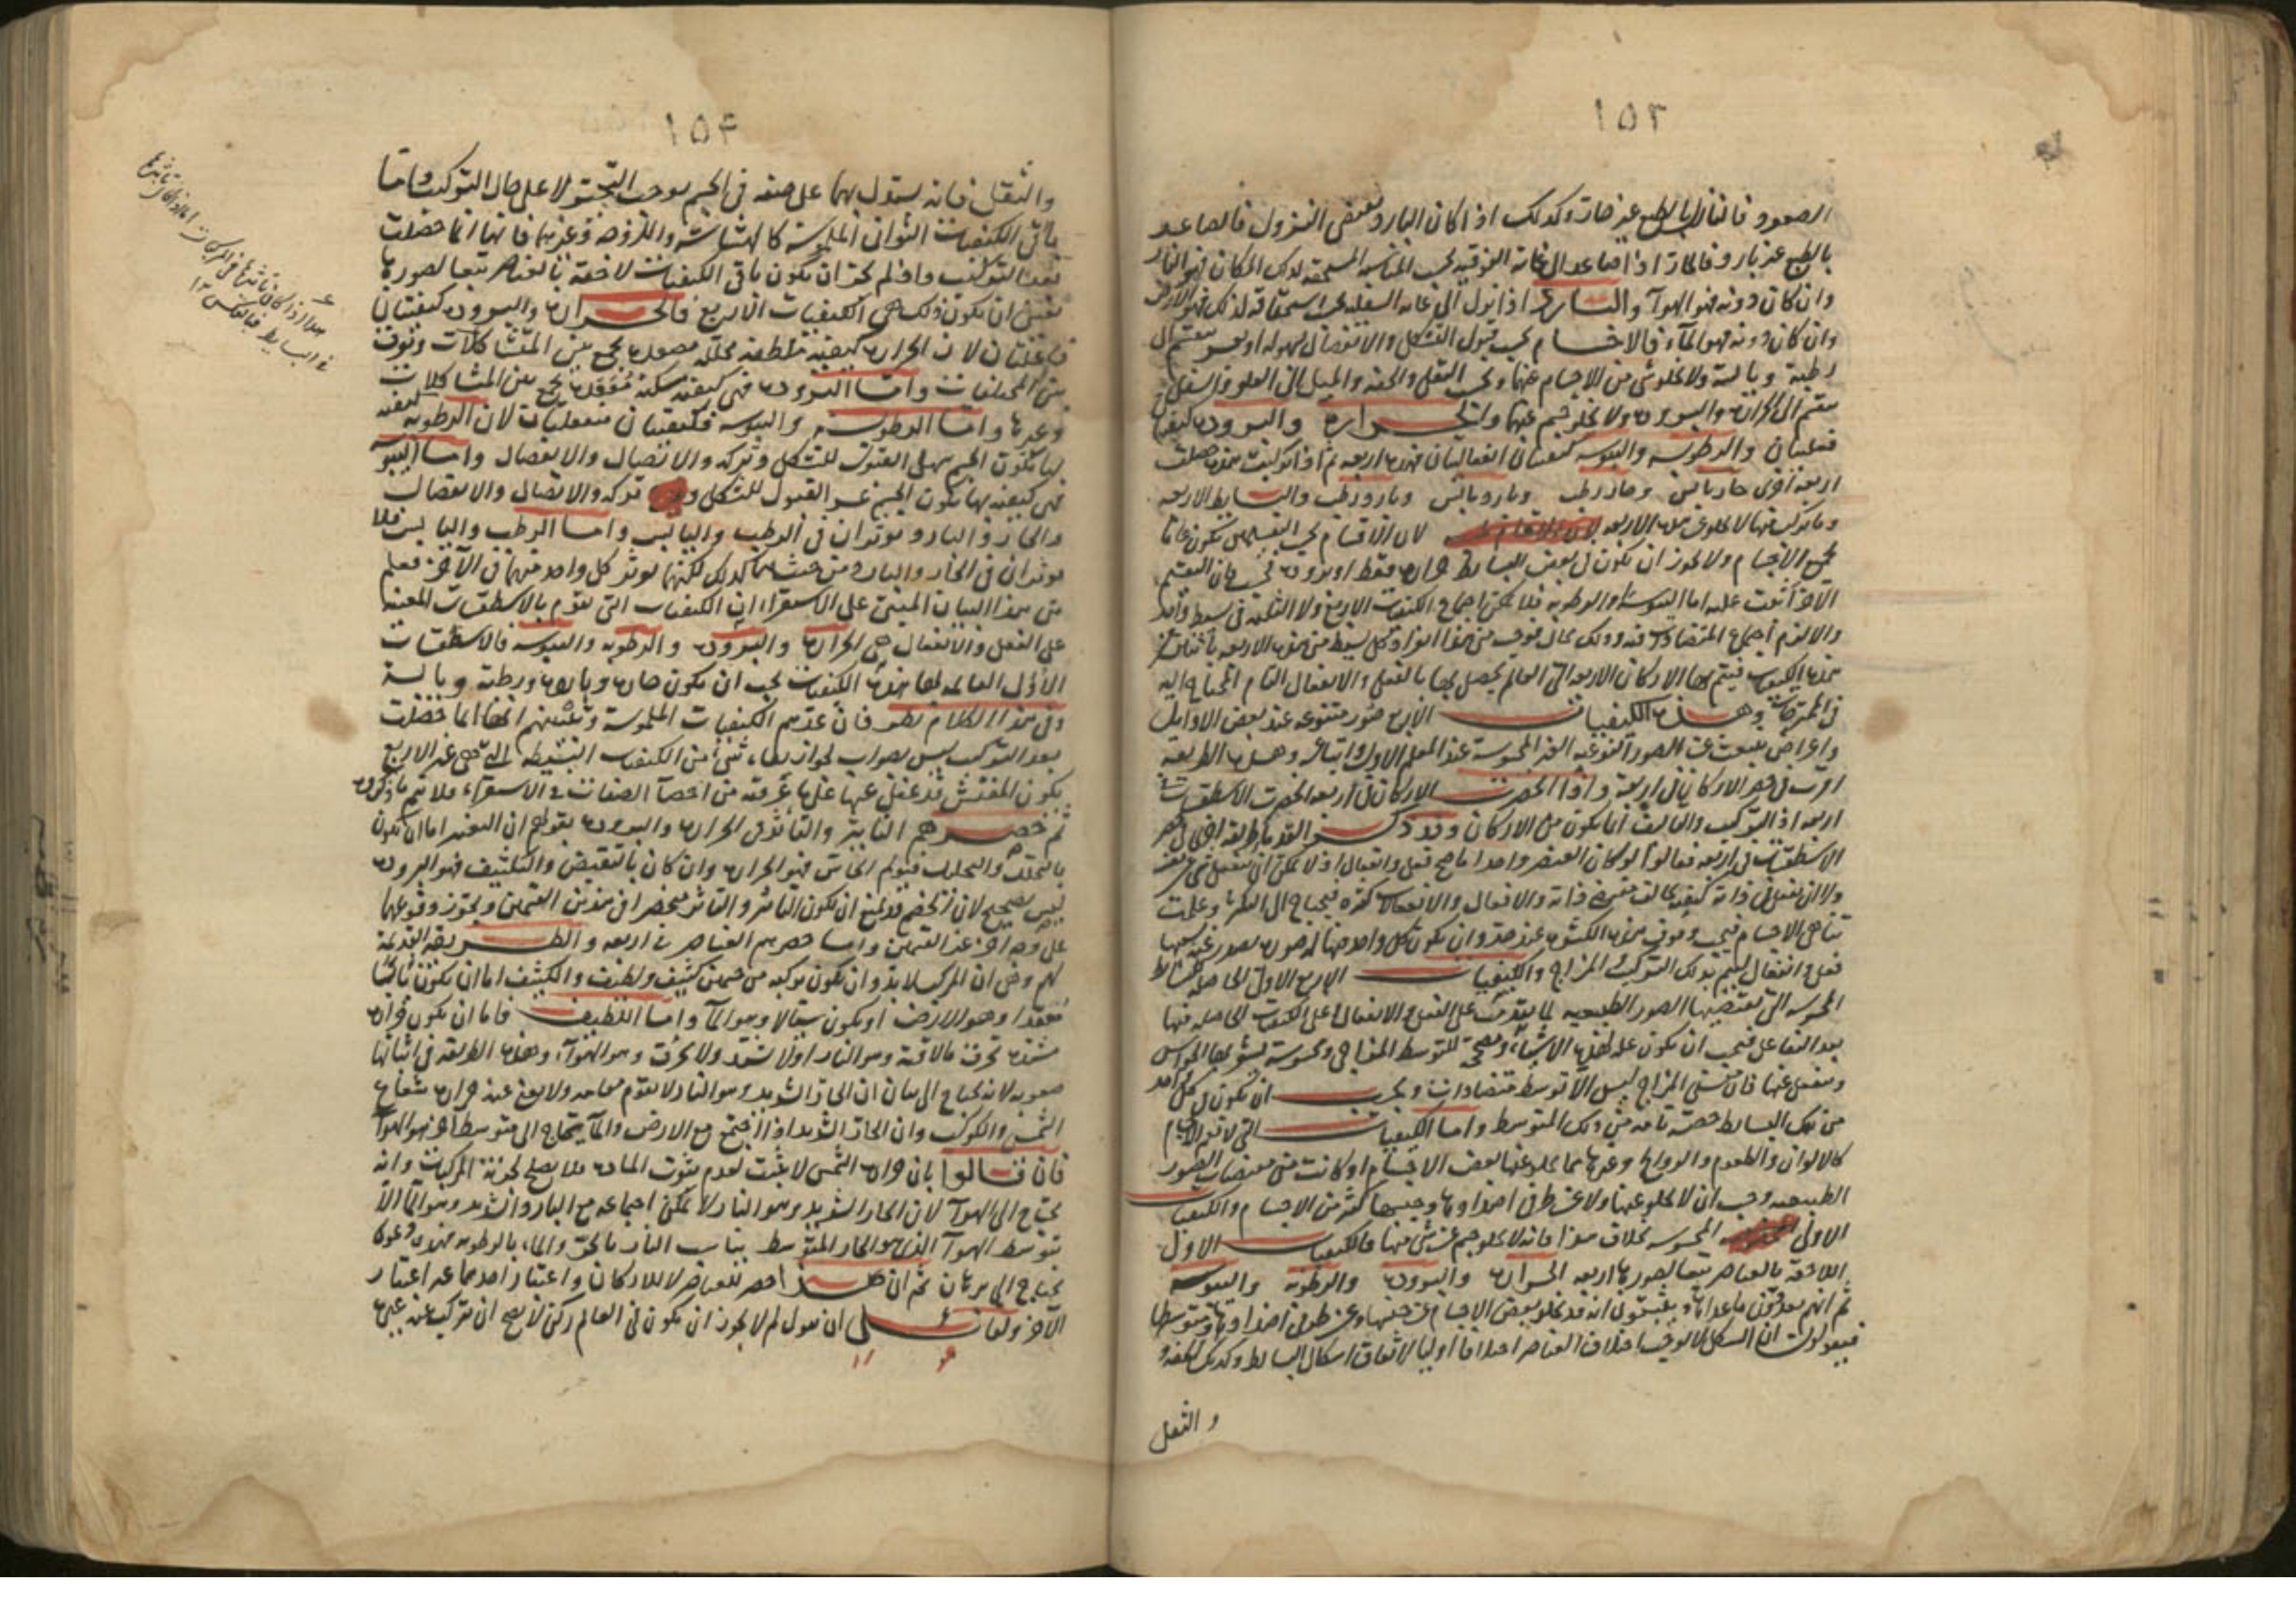 ١٥٣
الصعود فالنازل بالطبع غير حار وكذلك اذا كان البارد يقتضى النزول فالصاعد
بالطبع غير بارد فالحار اذا صاعد الى غاية الفوقيه بحسب المناسبة المستحقة لذلك المكان فهو النار
وان كان دونه فهو الهوآ والبارد اذا نزل الى غاية السفليه بحسب استحقاقه لذلك فهو الارض
وان كان دونه فهو المآء فالاجسام بحسب قبول التشكل والانفصال بسهولة او بعسر ينقسم الى
رطبة ويابسة ولا يخلو شى من الاجسام عنها وبحسب الثقل والخفة والميل الى العلو والسفل
ينقسم الى الحرارة والبرودة ولا يخلو جسم عنها والحرارة والبرودة كيفيتان
فعليتان والرطوبه واليبوسه كيفيتان انفعاليتان فهذه اربعه ثم اذا تركبت منها حصلت
اربعة اخرى حار يابس وحار رطب وبارد يابس وبارد رطب والبسايط الاربعه
وما تركب منها لا يخلو عن هذه الاربعه لان الاقسام بحسب التقسيمين يكون عاما
بجميع الاجسام ولا يجوز ان يكون فى بعض البسايط حرارة فقط او برودة فحسب فان التقسيم
الآخر اثبت عليه اما اليبوسة او الرطوبه فلا يمكن اجتماع الكيفيات الاربع ولا الثلثة فى بسيط واحد
والا لزم اجتماع المتضادات فيه وذلك محال
هذه الكيفيات فيتم بها الاركان الاربعة التى العالم يحصل بها بالفعل والانفعال التام المحتاج اليه
فى الممتزجات وهذه الكيفيات الاربع صور متنوعه عند بعض الاوايل
واعراض تنبعث عن الصور النوعيه الغير المحسوسة عند المعلم الاول واتباعه وهذه الطريقة
اقرب فى حصر الاركان فى اربعة واذا انحصرت الاركان فى اربعة انحصرت الاسطقسات
اربعه اذ التركيب والتاليف انما يكون من الاركان وقد ذكر القدما طريقة اخرى فى حصر
الاسطقسات فى اربعه فقالوا لو كان العنصر واحدا ما صح فعل وانفعال اذ لا يمكن ان ينفعل شى عن نفسه
ولا ان يفعل فى ذاته كيفية يخالف مقتضى ذاته والافعال والانفعالات كثيرة فيحتاج الى الكثرة وعلمت
تناهى الاجسام فيجب وقوف هذه الكثرة عند حد وان يكون لكل واحد منها صورة بصدر عنه بحسبها
فعل وانفعال ليتم بذلك التركيب المزاج والكيفيات الاربع الاول الحاصلة للبسايط
المحسوسة التى يقتضيها الصور الطبيعيه لما يقدمت على الفعل والانفعال على الكيفيات الحاصلة فيها
بعد التفاعل فيجب ان يكون علة لهذه الاشياء ومصححة للتوسط المزاجى ومحسوسة يشعر بها الحواس
وينفعل عنها فان معنى المزاج ليس الا توسط متضادات ويجب ان يكون فى كل واحد
من تلك البسايط حصة تامة من ذلك المتوسط واما الكيفيات التى لا تعم الاجسام
كالالوان والطعوم والروايح وغيرها مما يخلو عنها بعض الاجسام لو كانت من مقتضيات الصور
الطبيعيه وجب ان لا يخلو عنها ولا عن طرفى اضدادها وجنسها كثير من الاجسام والكيفيات
الاولى المحسوسه بخلاف هذا فانه لا يخلو جسم عن شى منها فالكيفيات الاول
اللاحقة بالعناصر تبعا لصورها اربعه الحرارة والبرودة والرطوبة واليبوسه
ثم انهم يحذفون ماعداها ويثبتون انه قد يخلو بعض الاجسام عن جنسها وعن طرفى اضدادها ومتوسطها
فيقولون ان الشكل لا يوجب اختلاف العناصر اختلافا اوليا لاتفاق اشكال البسايط وكذلك الخفة و
والثقل
١٥۴
والثقل فانه يستدل بهما على صفة فى الجسم يوجب التحيز لا على حال التركيب واما
باقى الكيفيات الثوانى الملموسة كالهشاشة واللزوجه وغيرها فانها انما حصلت
بعد التركيب واذا لم يجز ان يكون باقى الكيفيات لاحقة بالعناصر تبعا لصورها
تعين ان يكون ذلك هى الكيفيات الاربع فالحرارة والبرودة كيفيتان
فاعلتان لان الحرارة كيفية ملطفه محللة مصعدة يجمع بين المتشاكلات وتفرق
بين المختلفات واما البرودة فهى كيفية مسكنة معقدة يجمع بين المتشاكلات
وغيرها واما الرطوبة واليبوسه فكيفيتان منفعلتان لان الرطوبه كيفية
بها يكون الجسم سهل القبول للتشكل وتركه والاتصال والانفصال واما اليبوسة
فهى كيفية بها يكون الجسم عسر القبول للشكل وتركه والاتصال والانفصال
والحار والبارد يوثران فى الرطب واليابس واما الرطب واليابس فلا
يوثران فى الحار والبارد من حيث هما كذلك لكنهما يوثر كل واحد منهما فى الآخر فعلم
من هذا البيان المبنى على الاستقراء ان الكيفيات التى تقوم بالاسطقسات المعينة
على الفعل والانفعال هى الحرارة والبرودة والرطوبه واليبوسه فالاسطقسات
الاول القابلة لهذه الكيفيات يجب ان يكون حارة وباردة ورطبة ويابسة
وفى هذا الكلام نظر فان عدهم الكيفيات الملموسة وتبيينهم انها انما حصلت
بعد التركيب ليس بصواب لجواز بقاء شئ من الكيفيات البسيطة التى هى غير الاربع
يكون المفتش قد غفل عنها على ما عرفته من احصآ الصفات فى الاستقرآء فلا يتم ما ذكروه
ثم حصرهم التاثير والتأثر فى الحرارة والبرودة بقولهم ان التغير اما ان يكون
بالتخلخل والتحليل فيولم الحاس فهو الحرارة وان كان بالتقبيض والتكثيف فهو البرودة
ليس بصحيح لان الخصم قد يمنع ان يكون التاثير والتاثر منحصرا فى هذين القسمين ويجوز وقوعهما
على وجه آخر غير القسمين واما حصرهم العناصر فى اربعه والطريقة القديمة
لهم وهى ان المركب لابد وان يكون تركيبه من جسمين كثيف ولطيف والكثيف اما ان يكون يابسا
منعقدا وهو الارض او يكون سيالا وهو المآ واما اللطيف فاما ان يكون حرارته
مشتدة تحرق مالاقته وهو النار او لا تشتد ولا تحرق وهو الهوآء وهذه الطريقه فى اثباتها
صعوبه لانه يحتاج الى بيان ان الحار الشديد وهو النار لا يقوم مقامه ولا يغنى عنه حرارة شعاع
الشمس والكوكب وان الحار الشديد اذا اجتمع مع الارض والمآ يحتاج الى متوسط آخر هو الهوآ
فان قالوا بان حرارة الشمس لا يثبت لعدم ثبوت المادة فلا يصلح لجزئية المركبات وانه
يحتاج الى الهوآ لان الحار الشديد وهو النار لا يمكن اجتماعه مع البارد الشديد وهو المآ الا
بتوسط الهوآ الذى هو الحار المتوسط يناسب النار بالحر والماء بالرطوبه فهذه دعوى
يحتاج الى برهان ثم ان هذا احصر للعناصر لا للاركان واعتبار احدهما غير اعتبار
الآخر ولقائل ان يقول لم لا يجوز ان يكون فى العالم ركن لا يصح ان يتركب عنه غيره